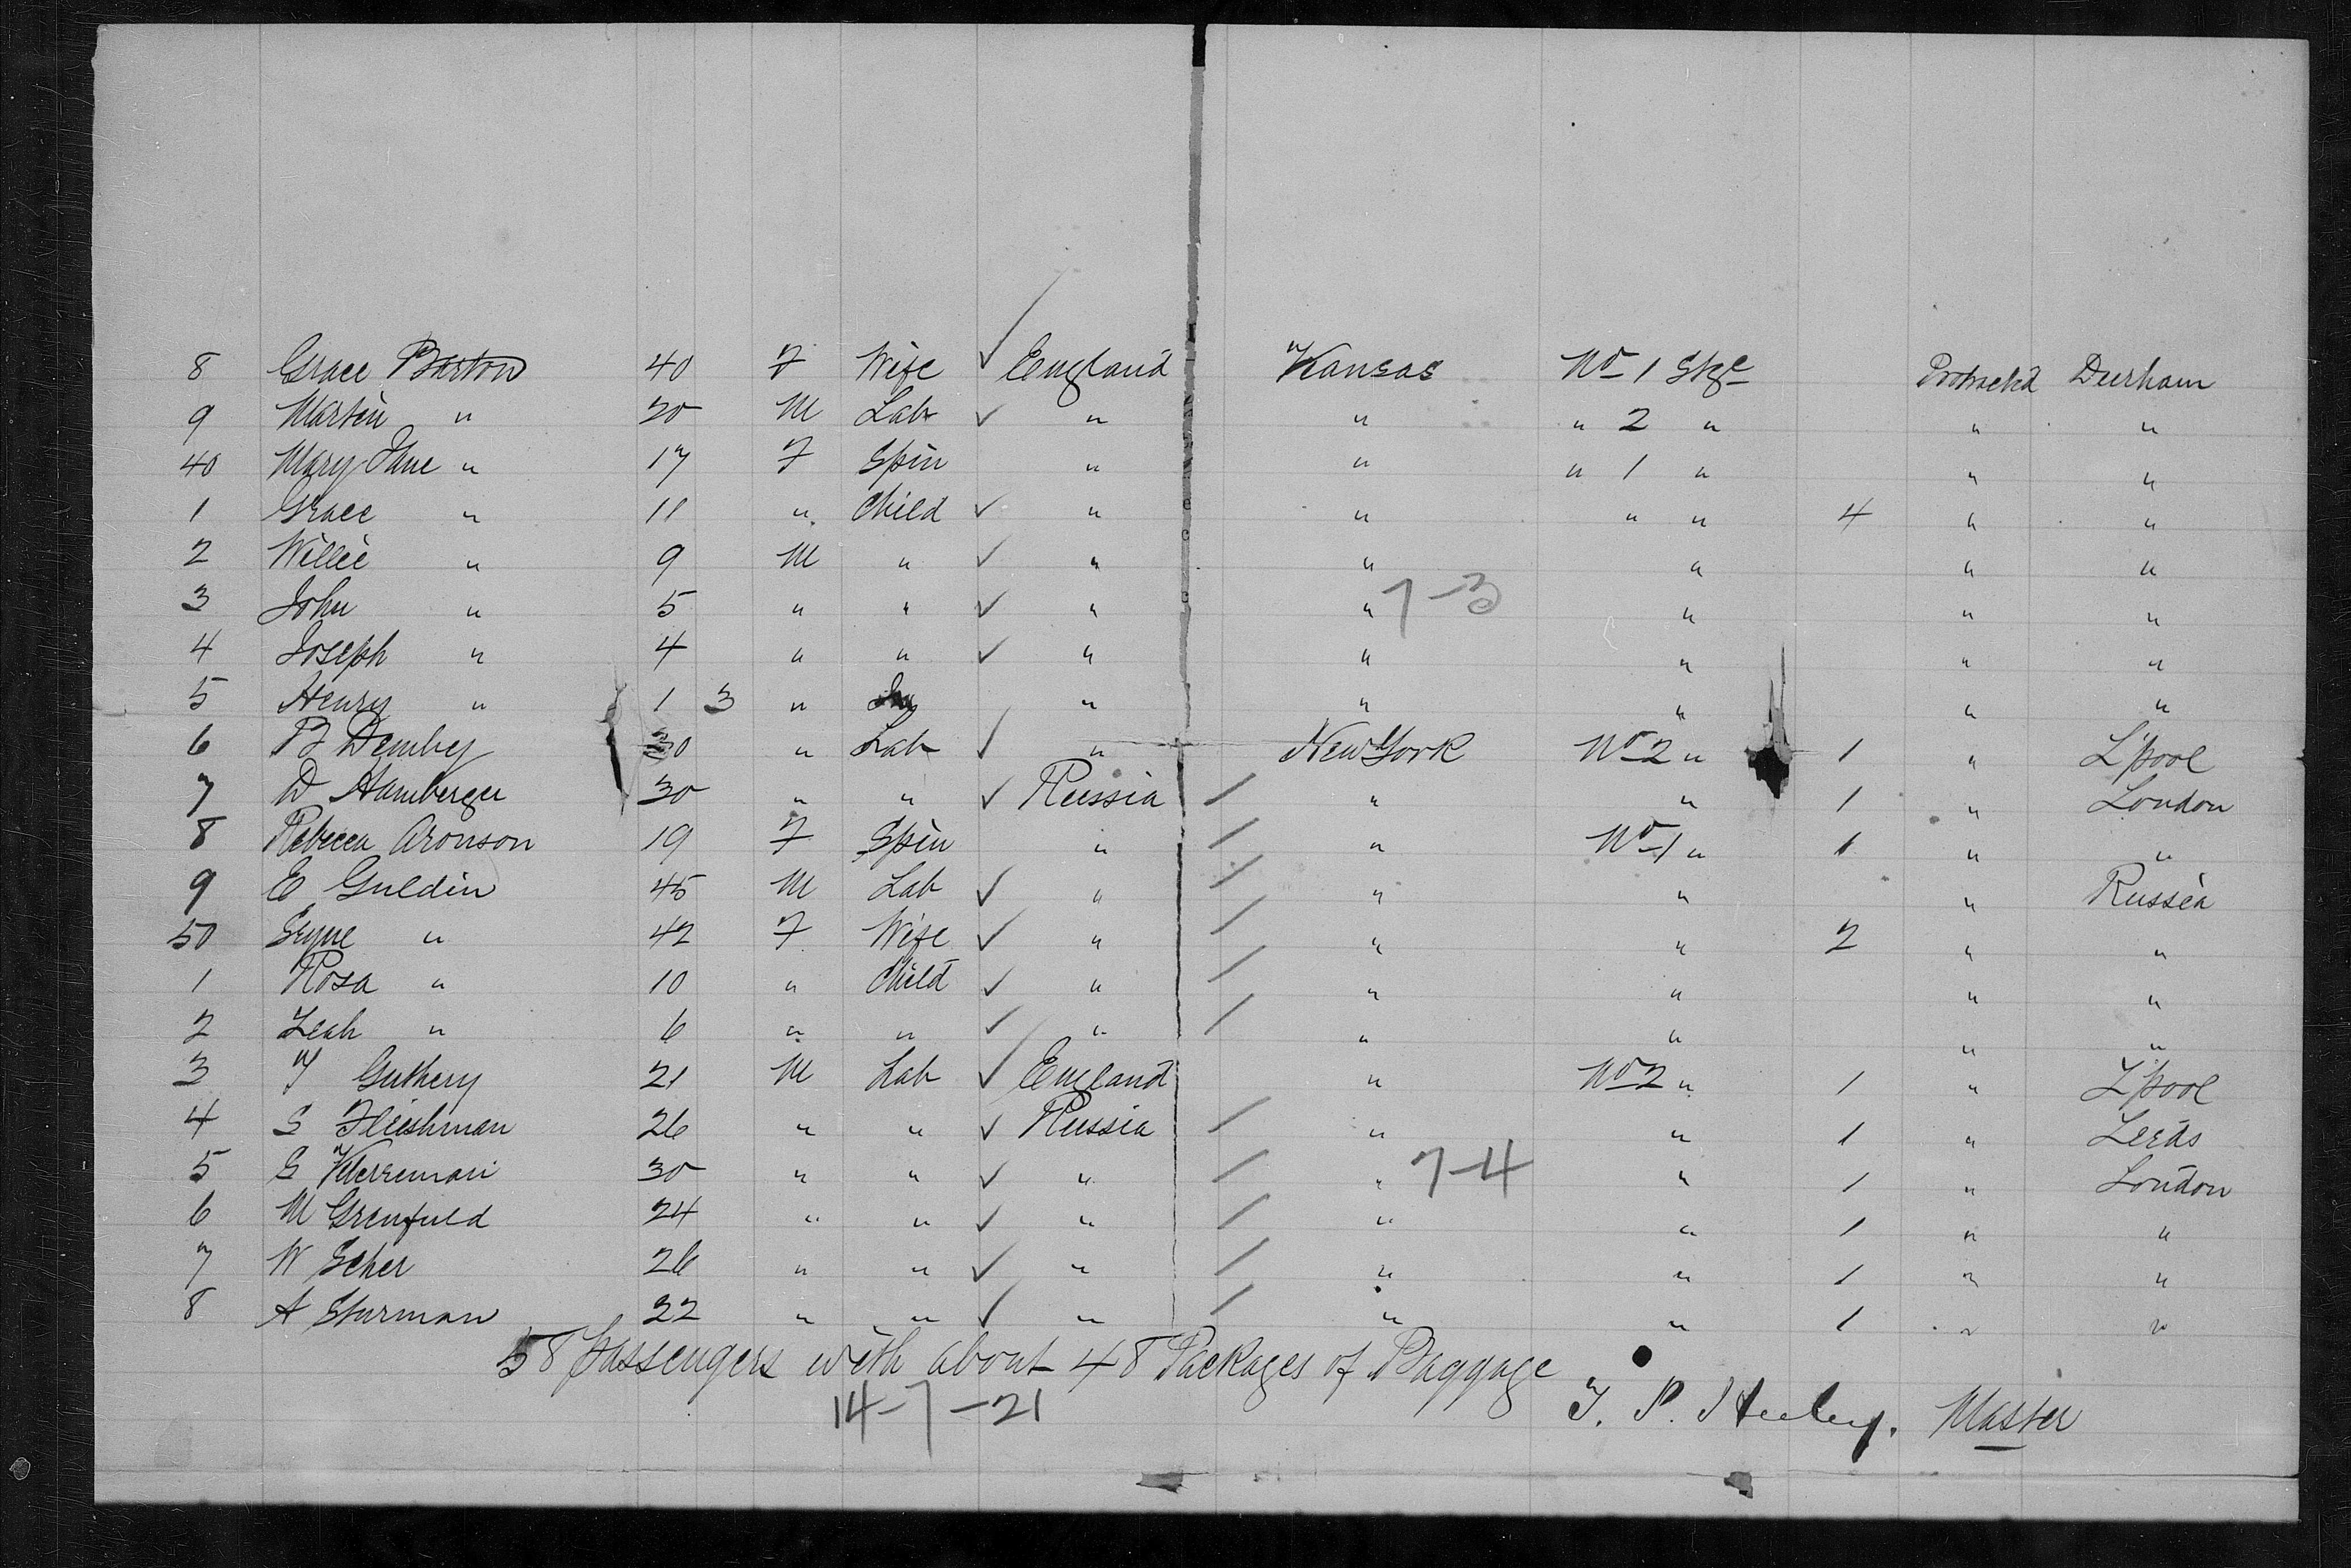 8 Grace Barton 40 F Wife ✓ England Kansas No 1 Stge Protract'd Durham
9 Martin " 20 M Lab ✓ " " " 2 " " "
40 Mary Jane " 17 F Spin " " " 1 " " "
1 Grace " 11 " Child ✓ " " " " 4 " "
2 Willie " 9 M " ✓ " " " " "
3 John " 5 " " ✓ " " 7-3 " " "
4 Joseph " 4 " " ✓ " " " " "
5 Henry " 1 3 " " " " " "
6 B Demby 30 " Lab ✓ " New York No 2 " 1 " L'pool
7 D Hamberger 30 " " ✓ Russia / " " 1 " London
8 Rebecca Aronson 19 F Spin " / " No 1 " 1 " "
9 E Guldin 45 M Lab ✓ " / " " " Russia
50 " 42 F Wife ✓ " / " " 2 " "
1 Rosa " 10 " Child ✓ " / " " " "
2 Leah " 6 " " ✓ " / " " " "
3 T Guthery 21 M Lab ✓ England " No 2 " 1 " L'pool
4 S Fleishman 26 " " ✓ Russia / " " 1 " Leeds
5 S 30 " " ✓ " / " 7-4 " 1 " London
6 M Grenfield 24 " " ✓ " / " " 1 " "
7 W Scher 26 " " ✓ " / " " 1 " "
8 A Sturman 22 " " ✓ " / " " 1 " "
58 Passengers with about 48 Packages of Baggage
14-7-21
T. P. Heeley. Master